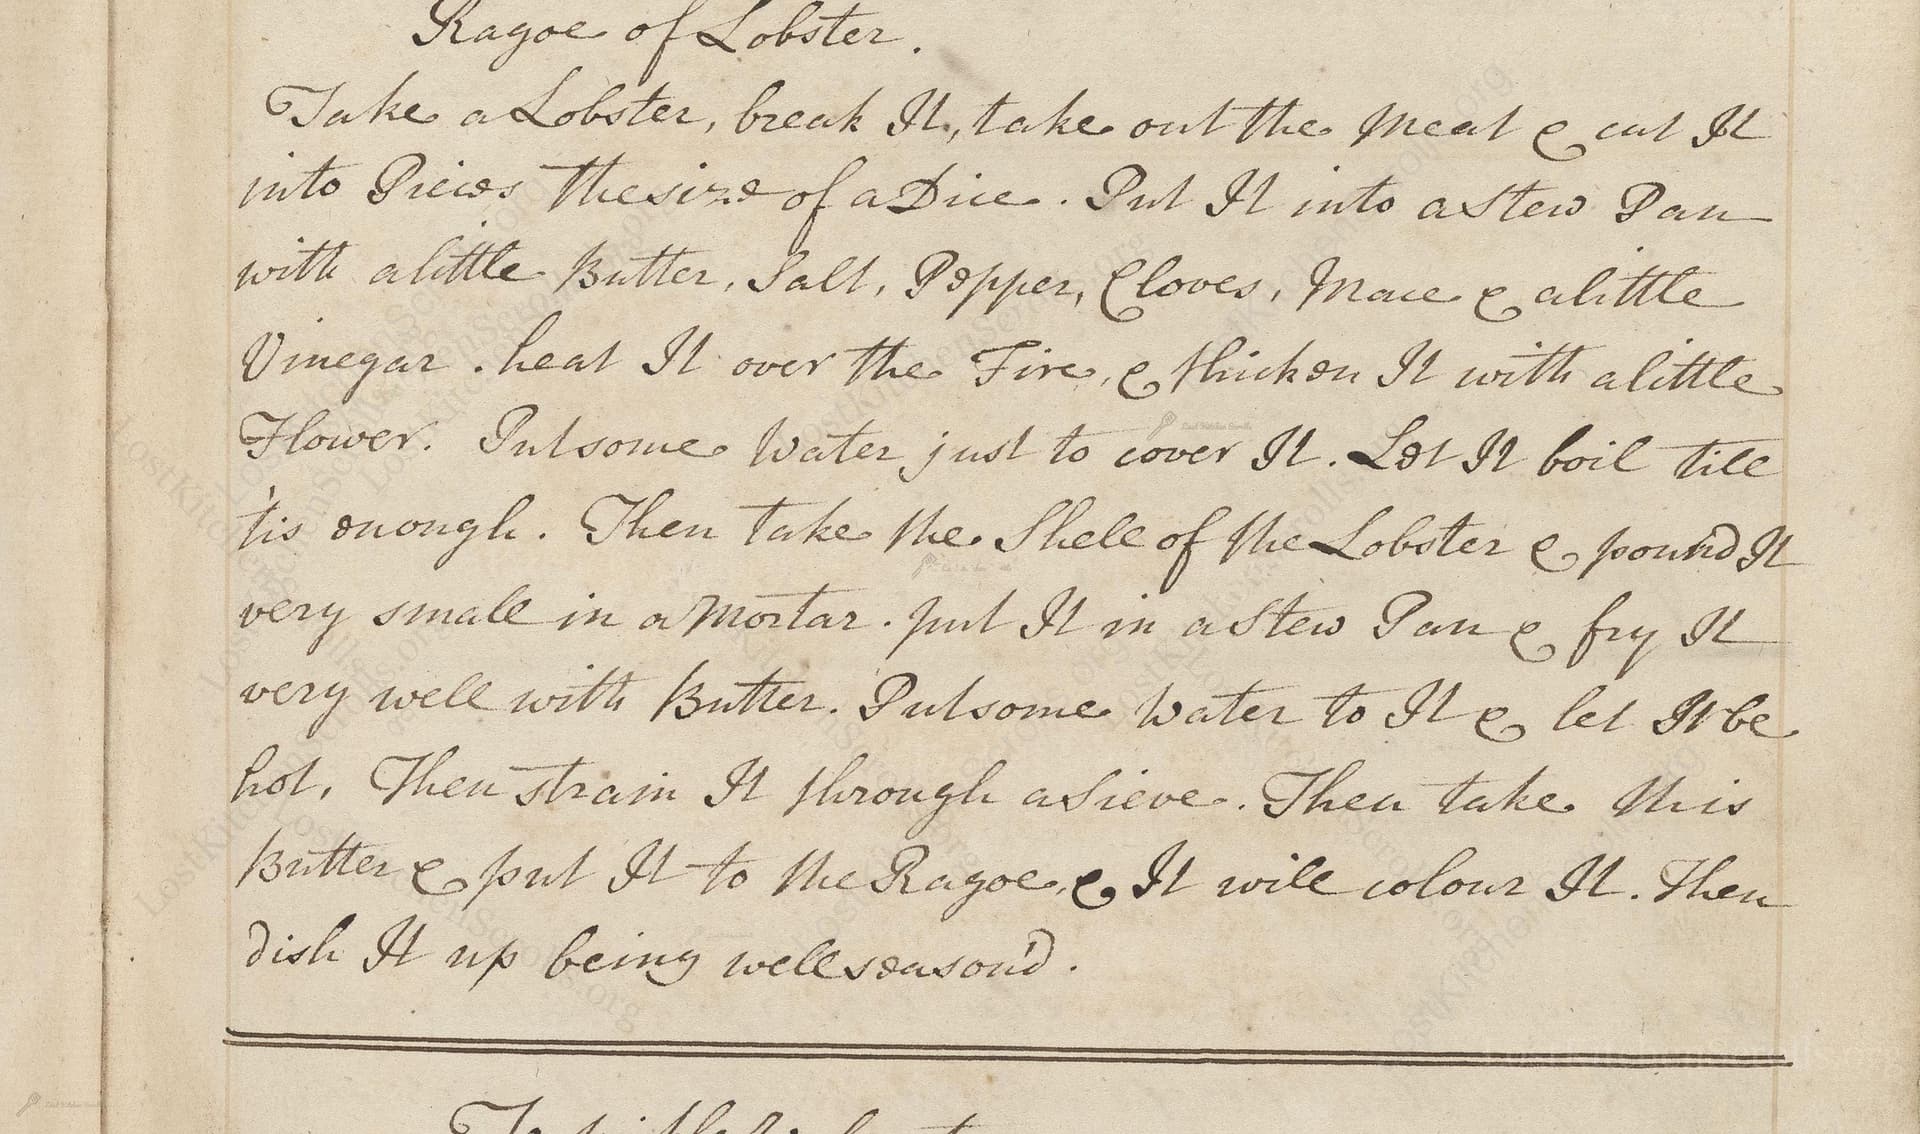 Ragoe of Lobster.
Take a Lobster, break It, take out the Meat & cut It
into Pieces the size of a Dice. Put It into a Stew Pan
with a little Butter, Salt, Pepper, Cloves, Mace & a little
Vinegar. heat It over the Fire, & thicken It with a little
Flower. Put some Water just to cover It. Let It boil till
'tis enough. Then take the Shell of the Lobster & pound It
very small in a Mortar. put It in a Stew Pan & fry It
very well with Butter. Put some Water to It & let It be
hot, Then strain It through a Sieve. Then take this
Butter & put It to the Ragoe, & It will colour It. Then
dish It up being well season'd.